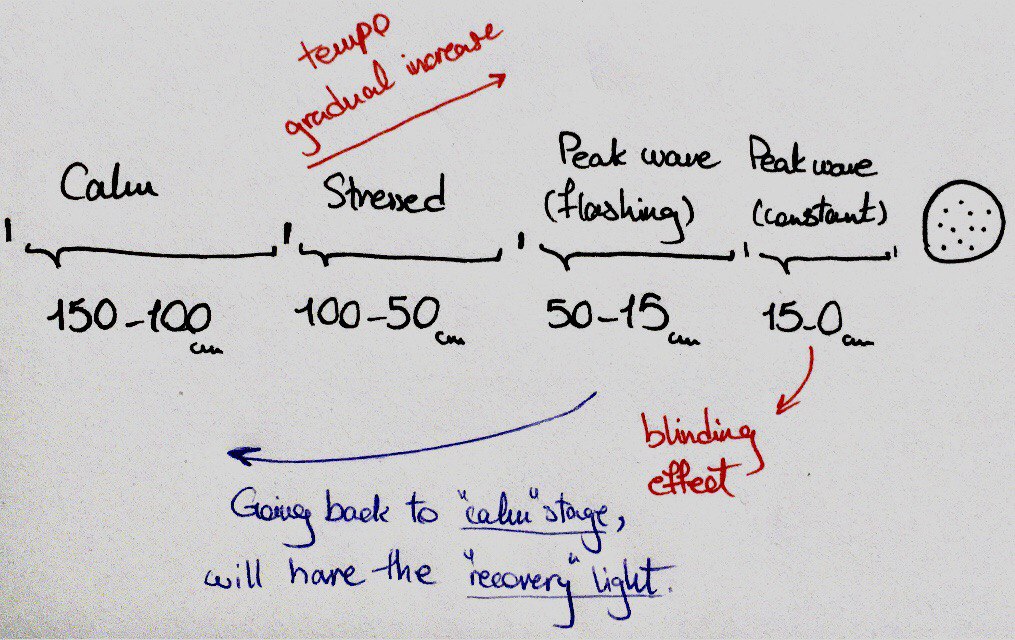 tempo
gradual increase
Calm
Stressed
Peak wave
(flashing)
Peak wave
(constant)
150-100cm
100-50cm
50-15cm
15-0cm
blinding
effect
Going back to "calm" stage,
will have the "recovery" light.